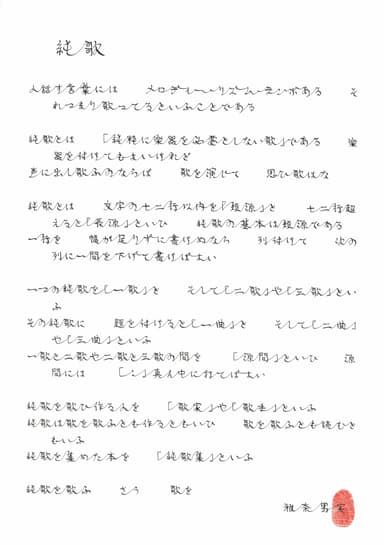 純歌
人話す言葉には　メロディー・リズム・テンポがある　そ
れつまり歌ってるといふことである
純歌とは　「純粋に楽器を必要としない歌」である　楽
器を付けてもよいけれど
声に出し歌ふのならば　歌を演じて　思ひ歌はな
純歌とは　文字の七二行以内を「短源」と　七二行超
えると「長源」といひ　純歌の基本は短源である
一行を　幅が足りずに書けぬなら　列付けて　次の
列に一間を下げて書けばよい
一つの純歌を「一歌」と　そして「二歌」や「三歌」とい
ふ
その純歌に　題を付けると「一曲」と　そして「二曲」
や「三曲」といふ
一歌と二歌や二歌と三歌の間を　「源間」といひ　源
間には　「」真ん中に打てばよい
純歌を歌ひ作る人を　「歌実」や「歌士」といふ
純歌は歌を歌ふとも作るともいひ　歌を歌ふとも読むと
もいふ
純歌を集めた本を　「純歌集」といふ
純歌を歌ふ　さう　歌を
雅奈男